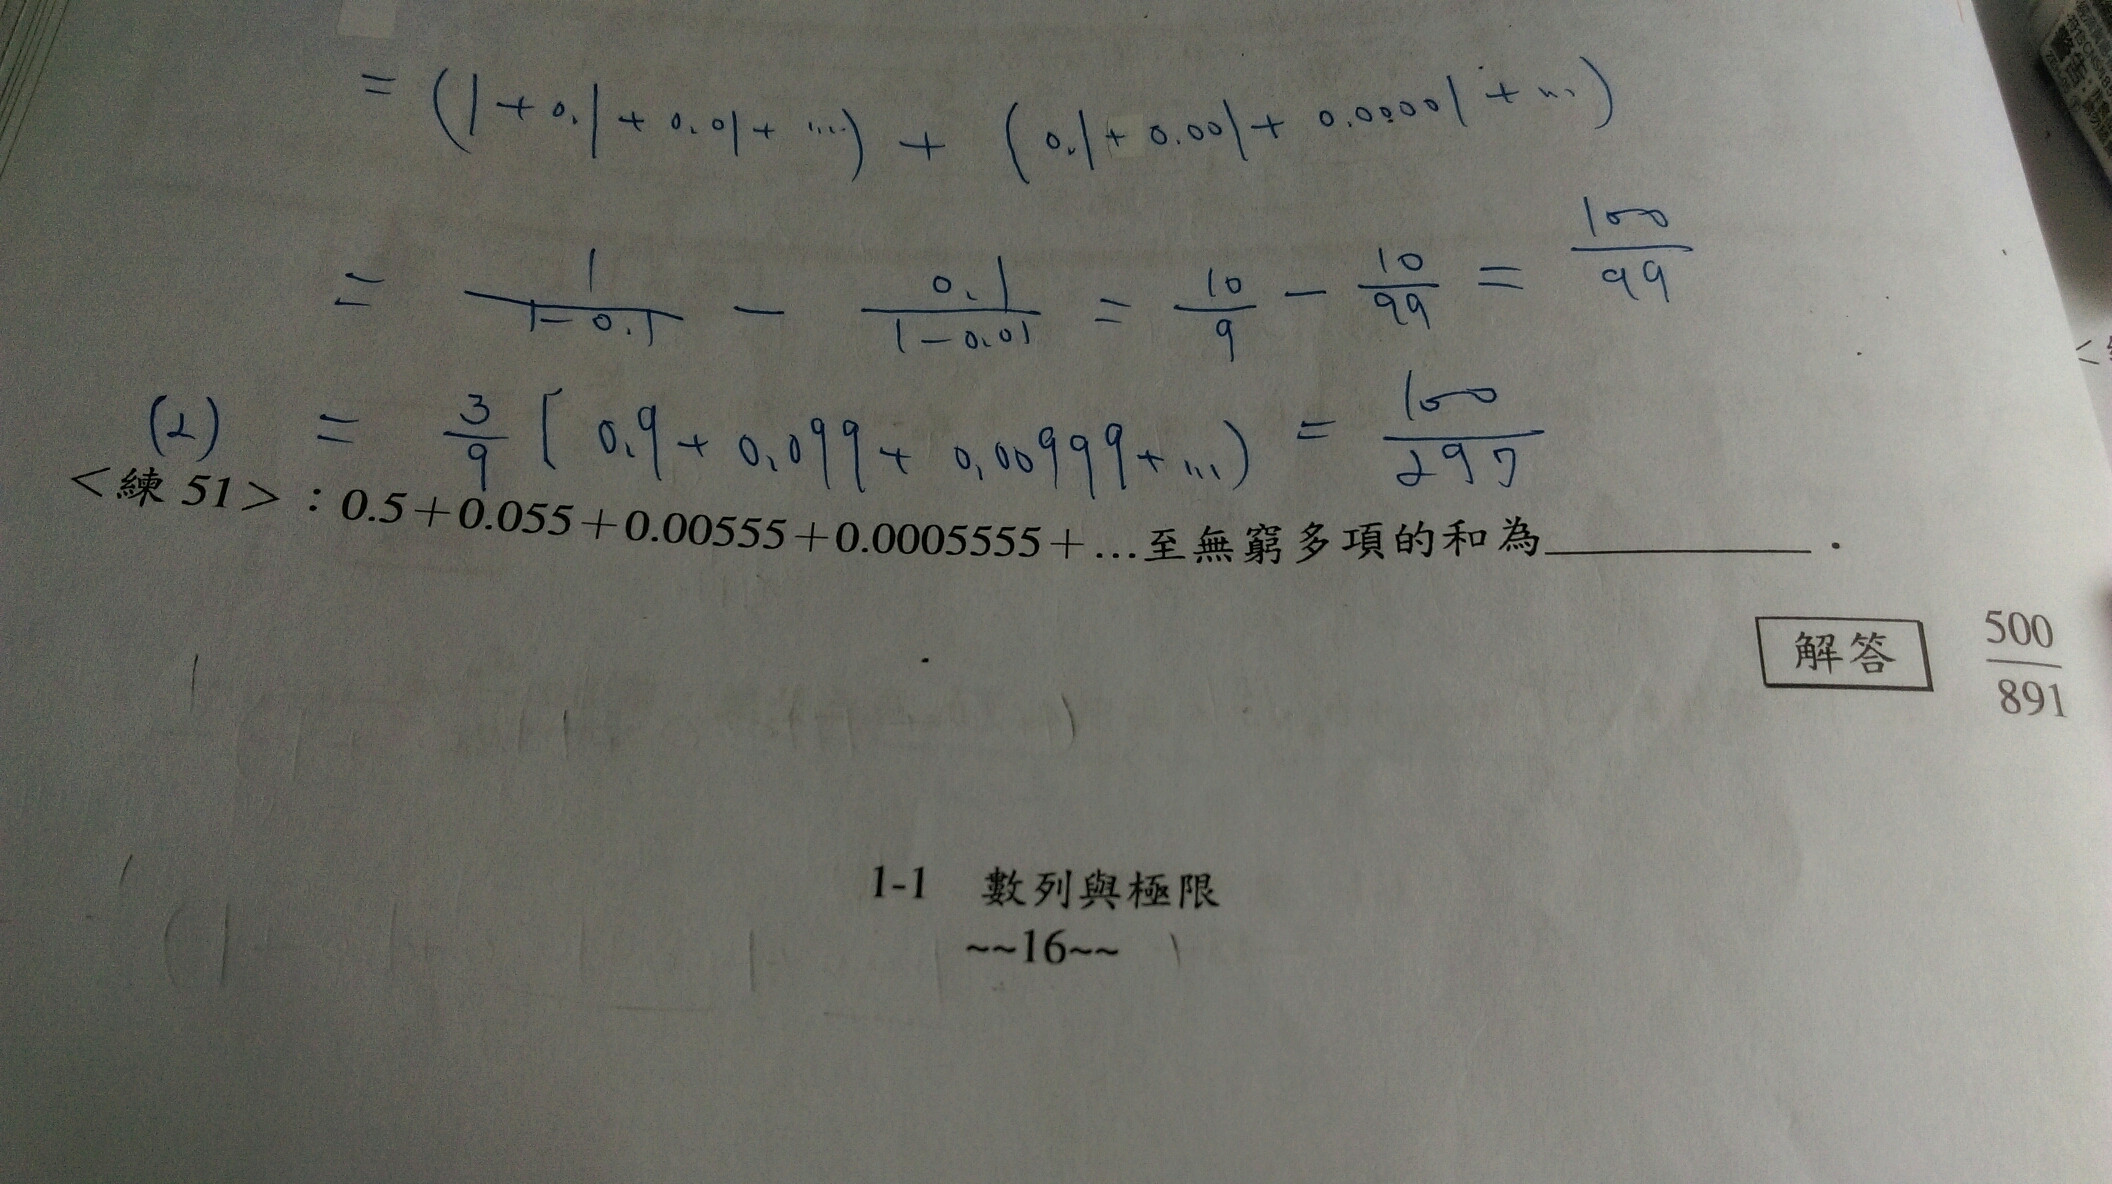 = (1+0.1+0.01+....) + (0.1+0.001+0.00001+...)
= \frac{1}{1-0.1} - \frac{0.1}{1-0.01} = \frac{10}{9} - \frac{10}{99} = \frac{100}{99}
(2) = \frac{3}{9} [0.9+0.099+0.00999+...) = \frac{100}{297}
<練 51>：0.5＋0.055＋0.00555＋0.0005555＋…至無窮多項的和為＿＿＿＿＿．
解答 \frac{500}{891}
1-1 數列與極限
~~16~~